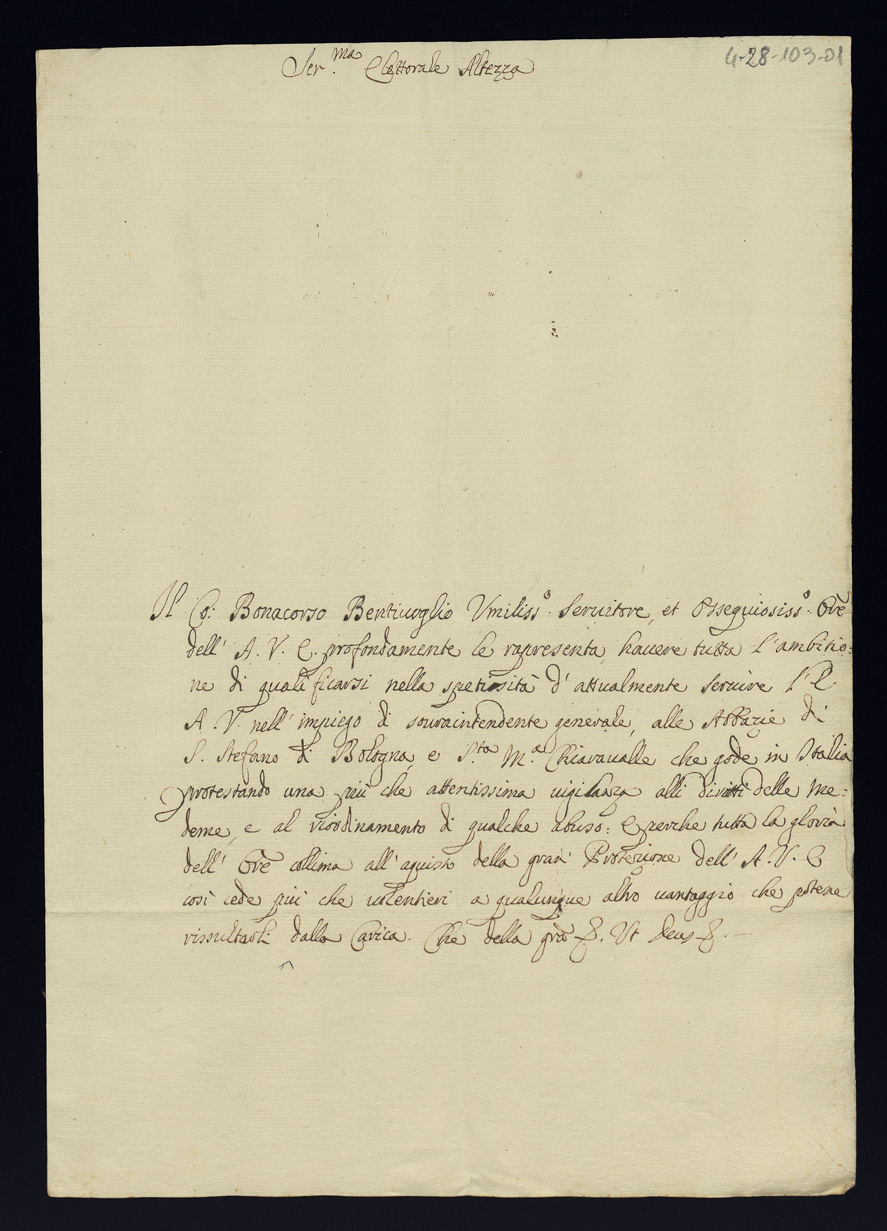 4-28-103-01
Ser.ma Elettorale Altezza
Il Co: Bonacorso Bentivoglio Umiliss.o Servitore, et Ossequiosiss.o Ore
dell' A. V. E. profondamente le rapresenta, havere tutta l'ambitio:
ne di qualificarsi nella spetiosità d'attualmente servire l'E.
A. V. nell'impiego di sovraintendente generale, alle Abbazie di
S. Stefano di Bologna, e S.ta M.a Chiaravalle che gode in Italia
protestando una più che attentissima vigilanza alli diritti delle me:
deme, e al riordinamento di qualche abuso: E perche tutta la gloria
dell' Ore collima all'aquisto della gran Protezione dell' A. V. E
così cede più che volentieri a qualunque altro vantaggio che potesse
rissultarli dalla Carica. Che della gra &. Ut Deus &.